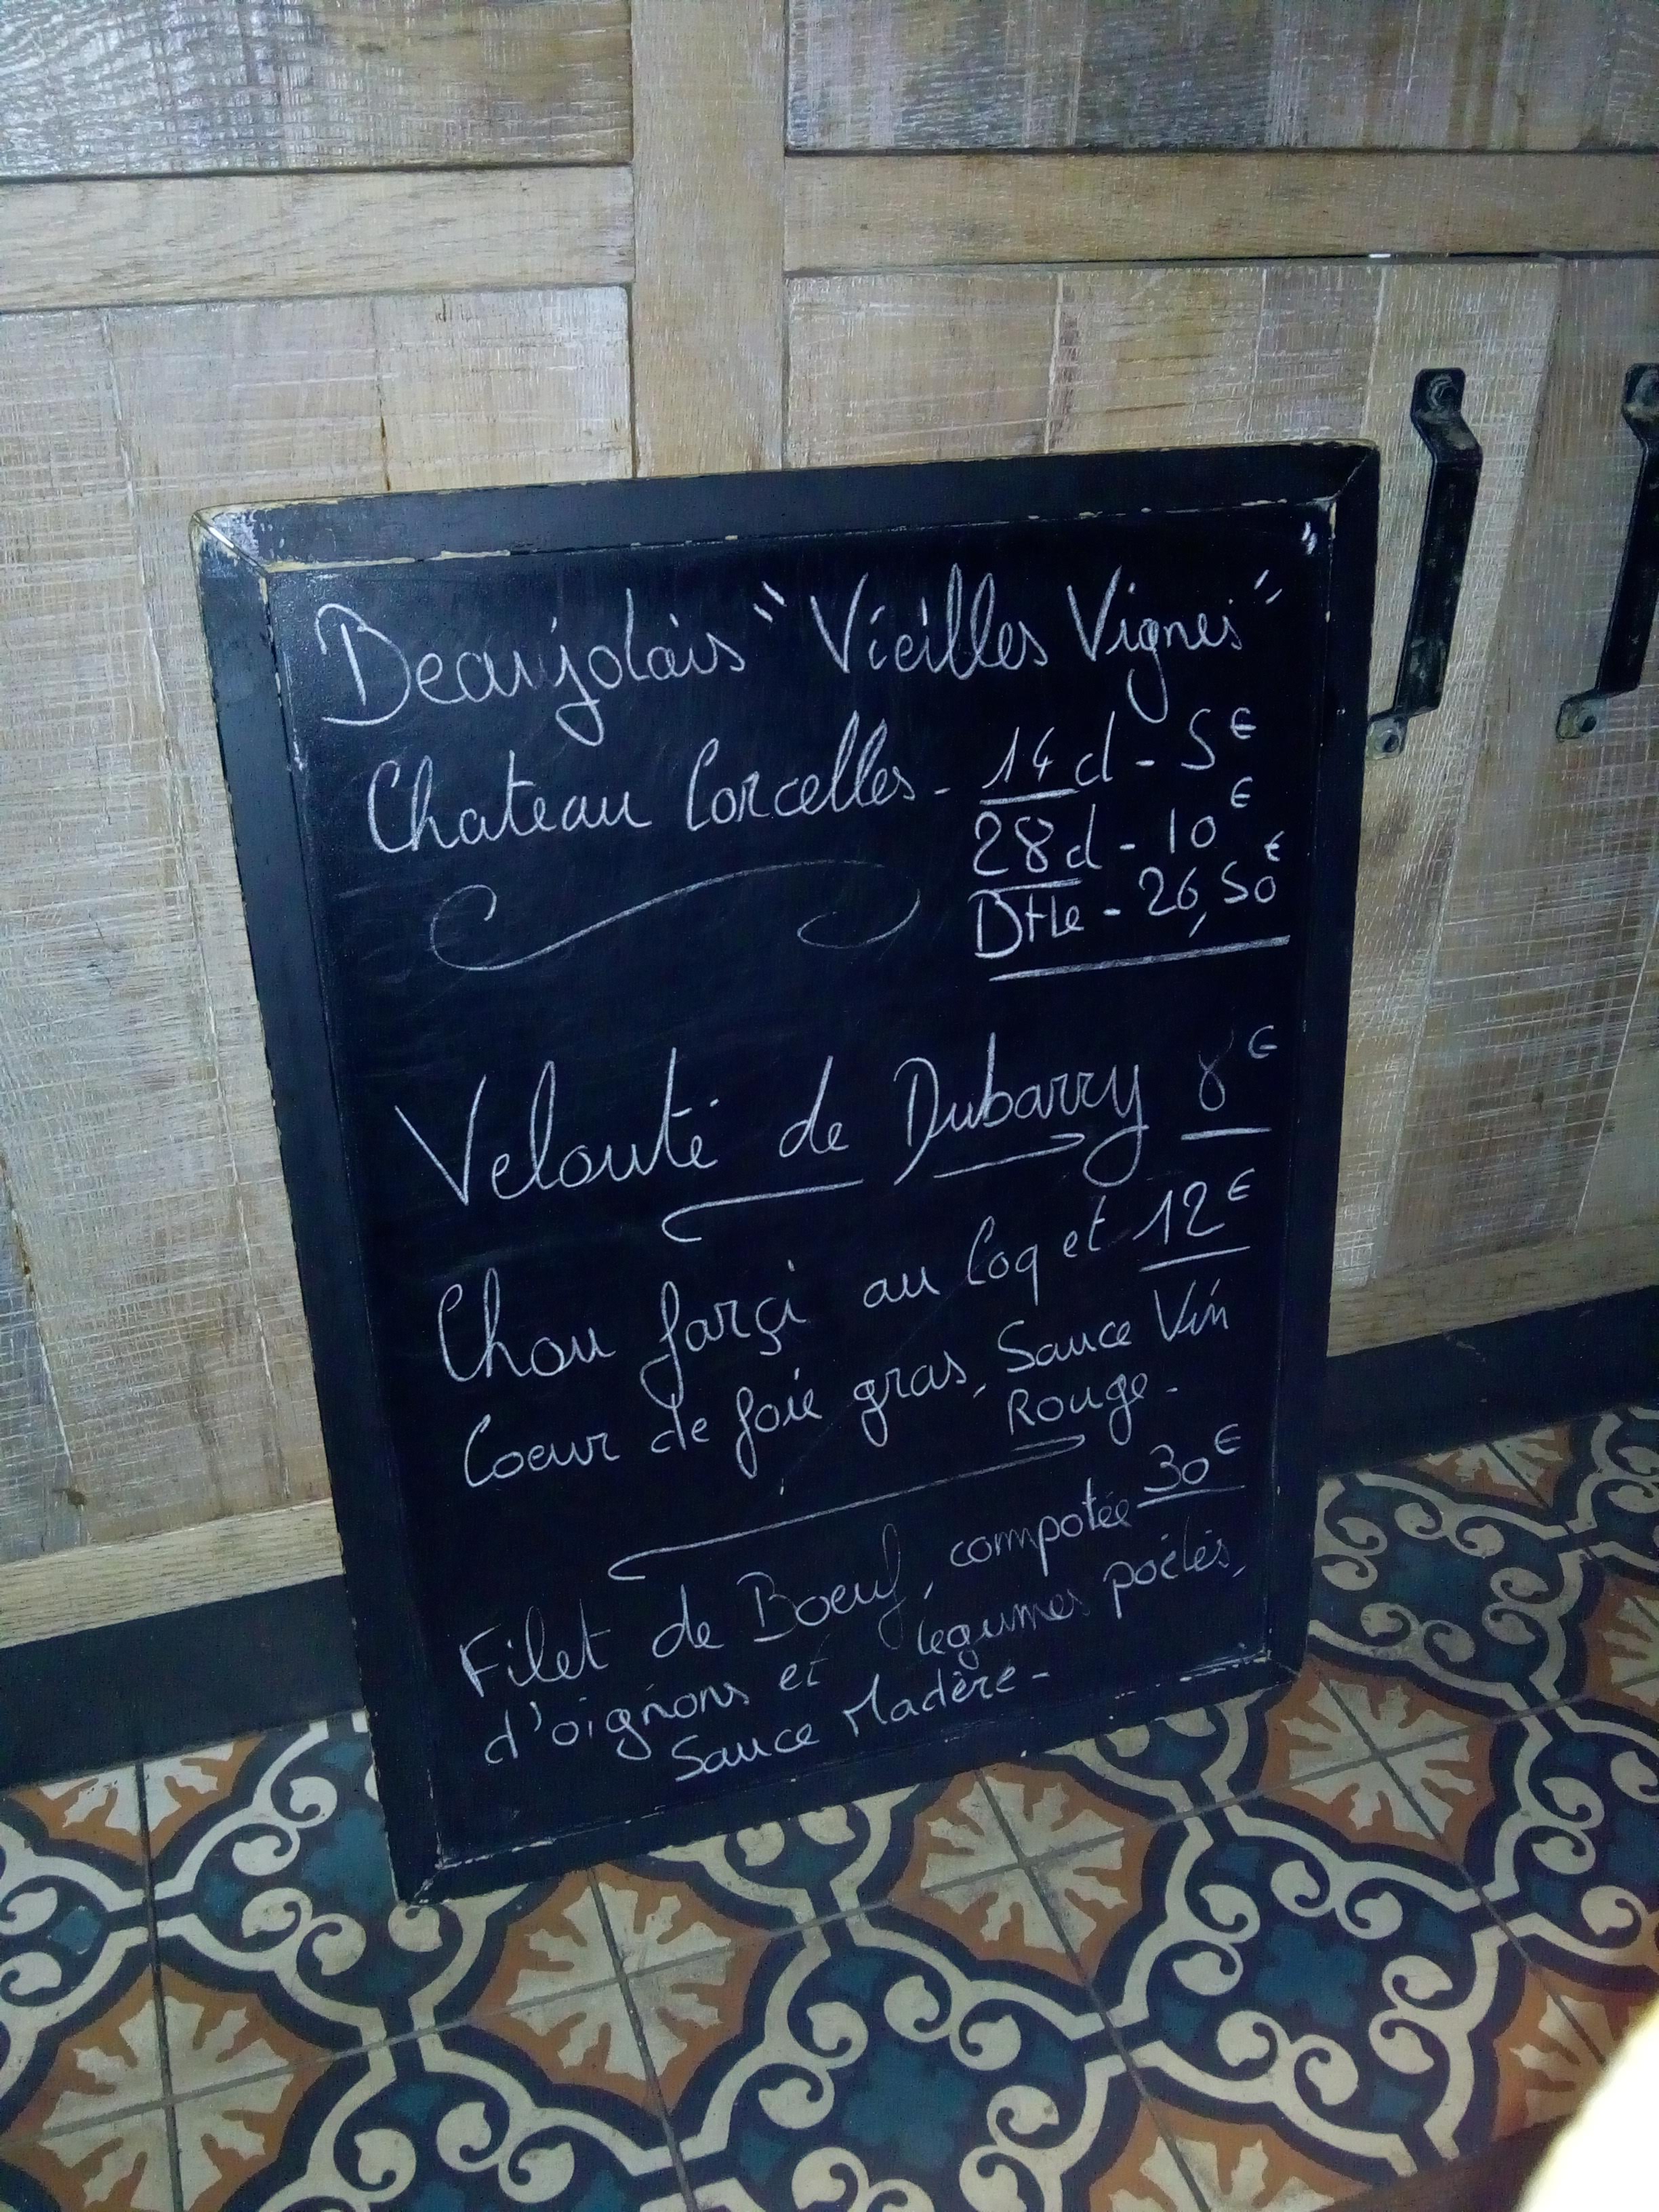 Beaujolais "Vieilles Vignes"
Chateau Corcelles - 14d - 5€
28d - 10€
Btle - 26,50€
Velouté de Dubarry 8€
Chou farçi au Coq et 12€
Coeur de foie gras, Sauce Vin
Rouge -
Filet de Boeuf, compotée 30€
d'oignons et légumes poêlés,
Sauce Madère -